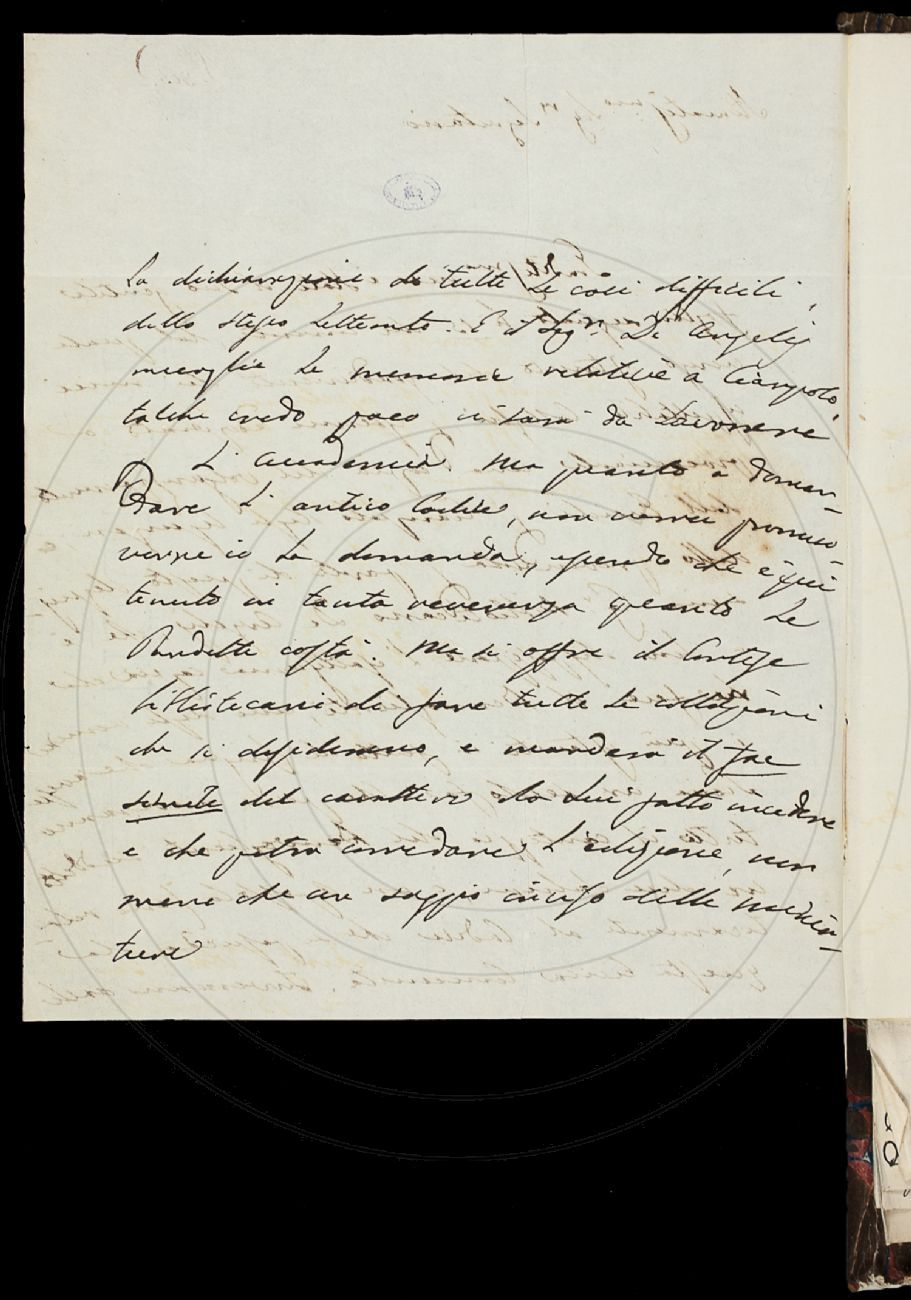 La dichiarazione di tutte le cose difficili
dello stesso Letterato. E il Sigr. De Angelis
raccoglie le memorie relative a Ciampolo,
talche credo poco ci sarà da lavorare
L'Accademia. Ma quanto a doman-
dare l'antico Codice, non vorrei promuo-
verne io la domanda, essendo che è qui
tenuto in tanta reverenza quanto le
Pandette costà. Ma si offre il Cortese
bibliotecario di fare tutte le collazioni
che si desiderano, e manderà il fac
simile del carattere da lui fatto incidere
e che potrà corredare l'edizione, non
meno che un saggio inciso delle minia-
ture